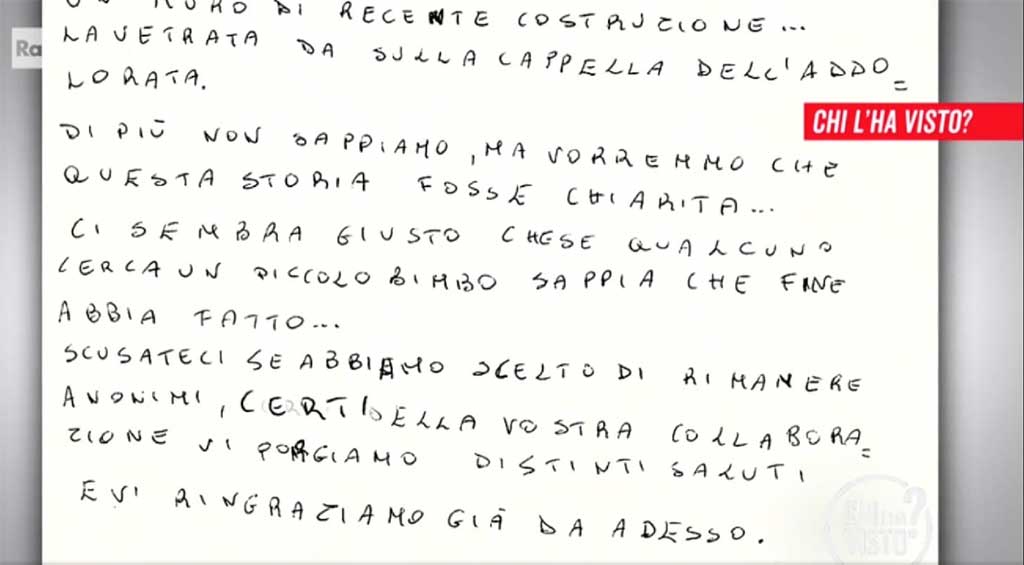 UN MURO DI RECENTE COSTRUZIONE...
LA VETRATA DA SULLA CAPPELLA DELL'ADDO=
LORATA.
Rai
CHI L'HA VISTO?
DI PIÙ NON SAPPIAMO, MA VORREMMO CHE
QUESTA STORIA FOSSE CHIARITA...
CI SEMBRA GIUSTO CHE SE QUALCUNO
CERCA UN PICCOLO BIMBO SAPPIA CHE FINE
ABBIA FATTO...
SCUSATECI SE ABBIAMO SCELTO DI RIMANERE
ANONIMI, CERTI DELLA VOSTRA COLLABORA=
ZIONE VI PORGIAMO DISTINTI SALUTI
E VI RINGRAZIAMO GIÀ DA ADESSO.
CHI L'HA VISTO?